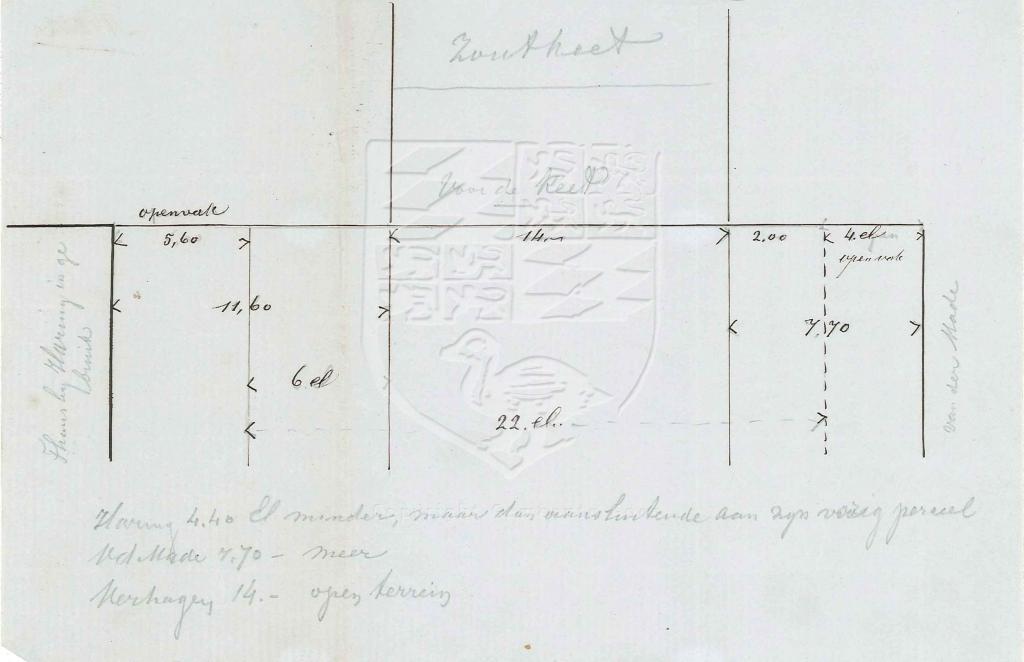 Zoutkeet
Voor de Keet
openvak
5,60
14.
2.00
4.el
openvak
11,60
7,70
6 el
22.el.
Thans by Haring in ge
bruik
van der Made
Haring 4.40 El minder, maar dan aansluitende aan zyn vorig perceel
Vd Made 7.70 - meer
Verhagen 14.- open terrein